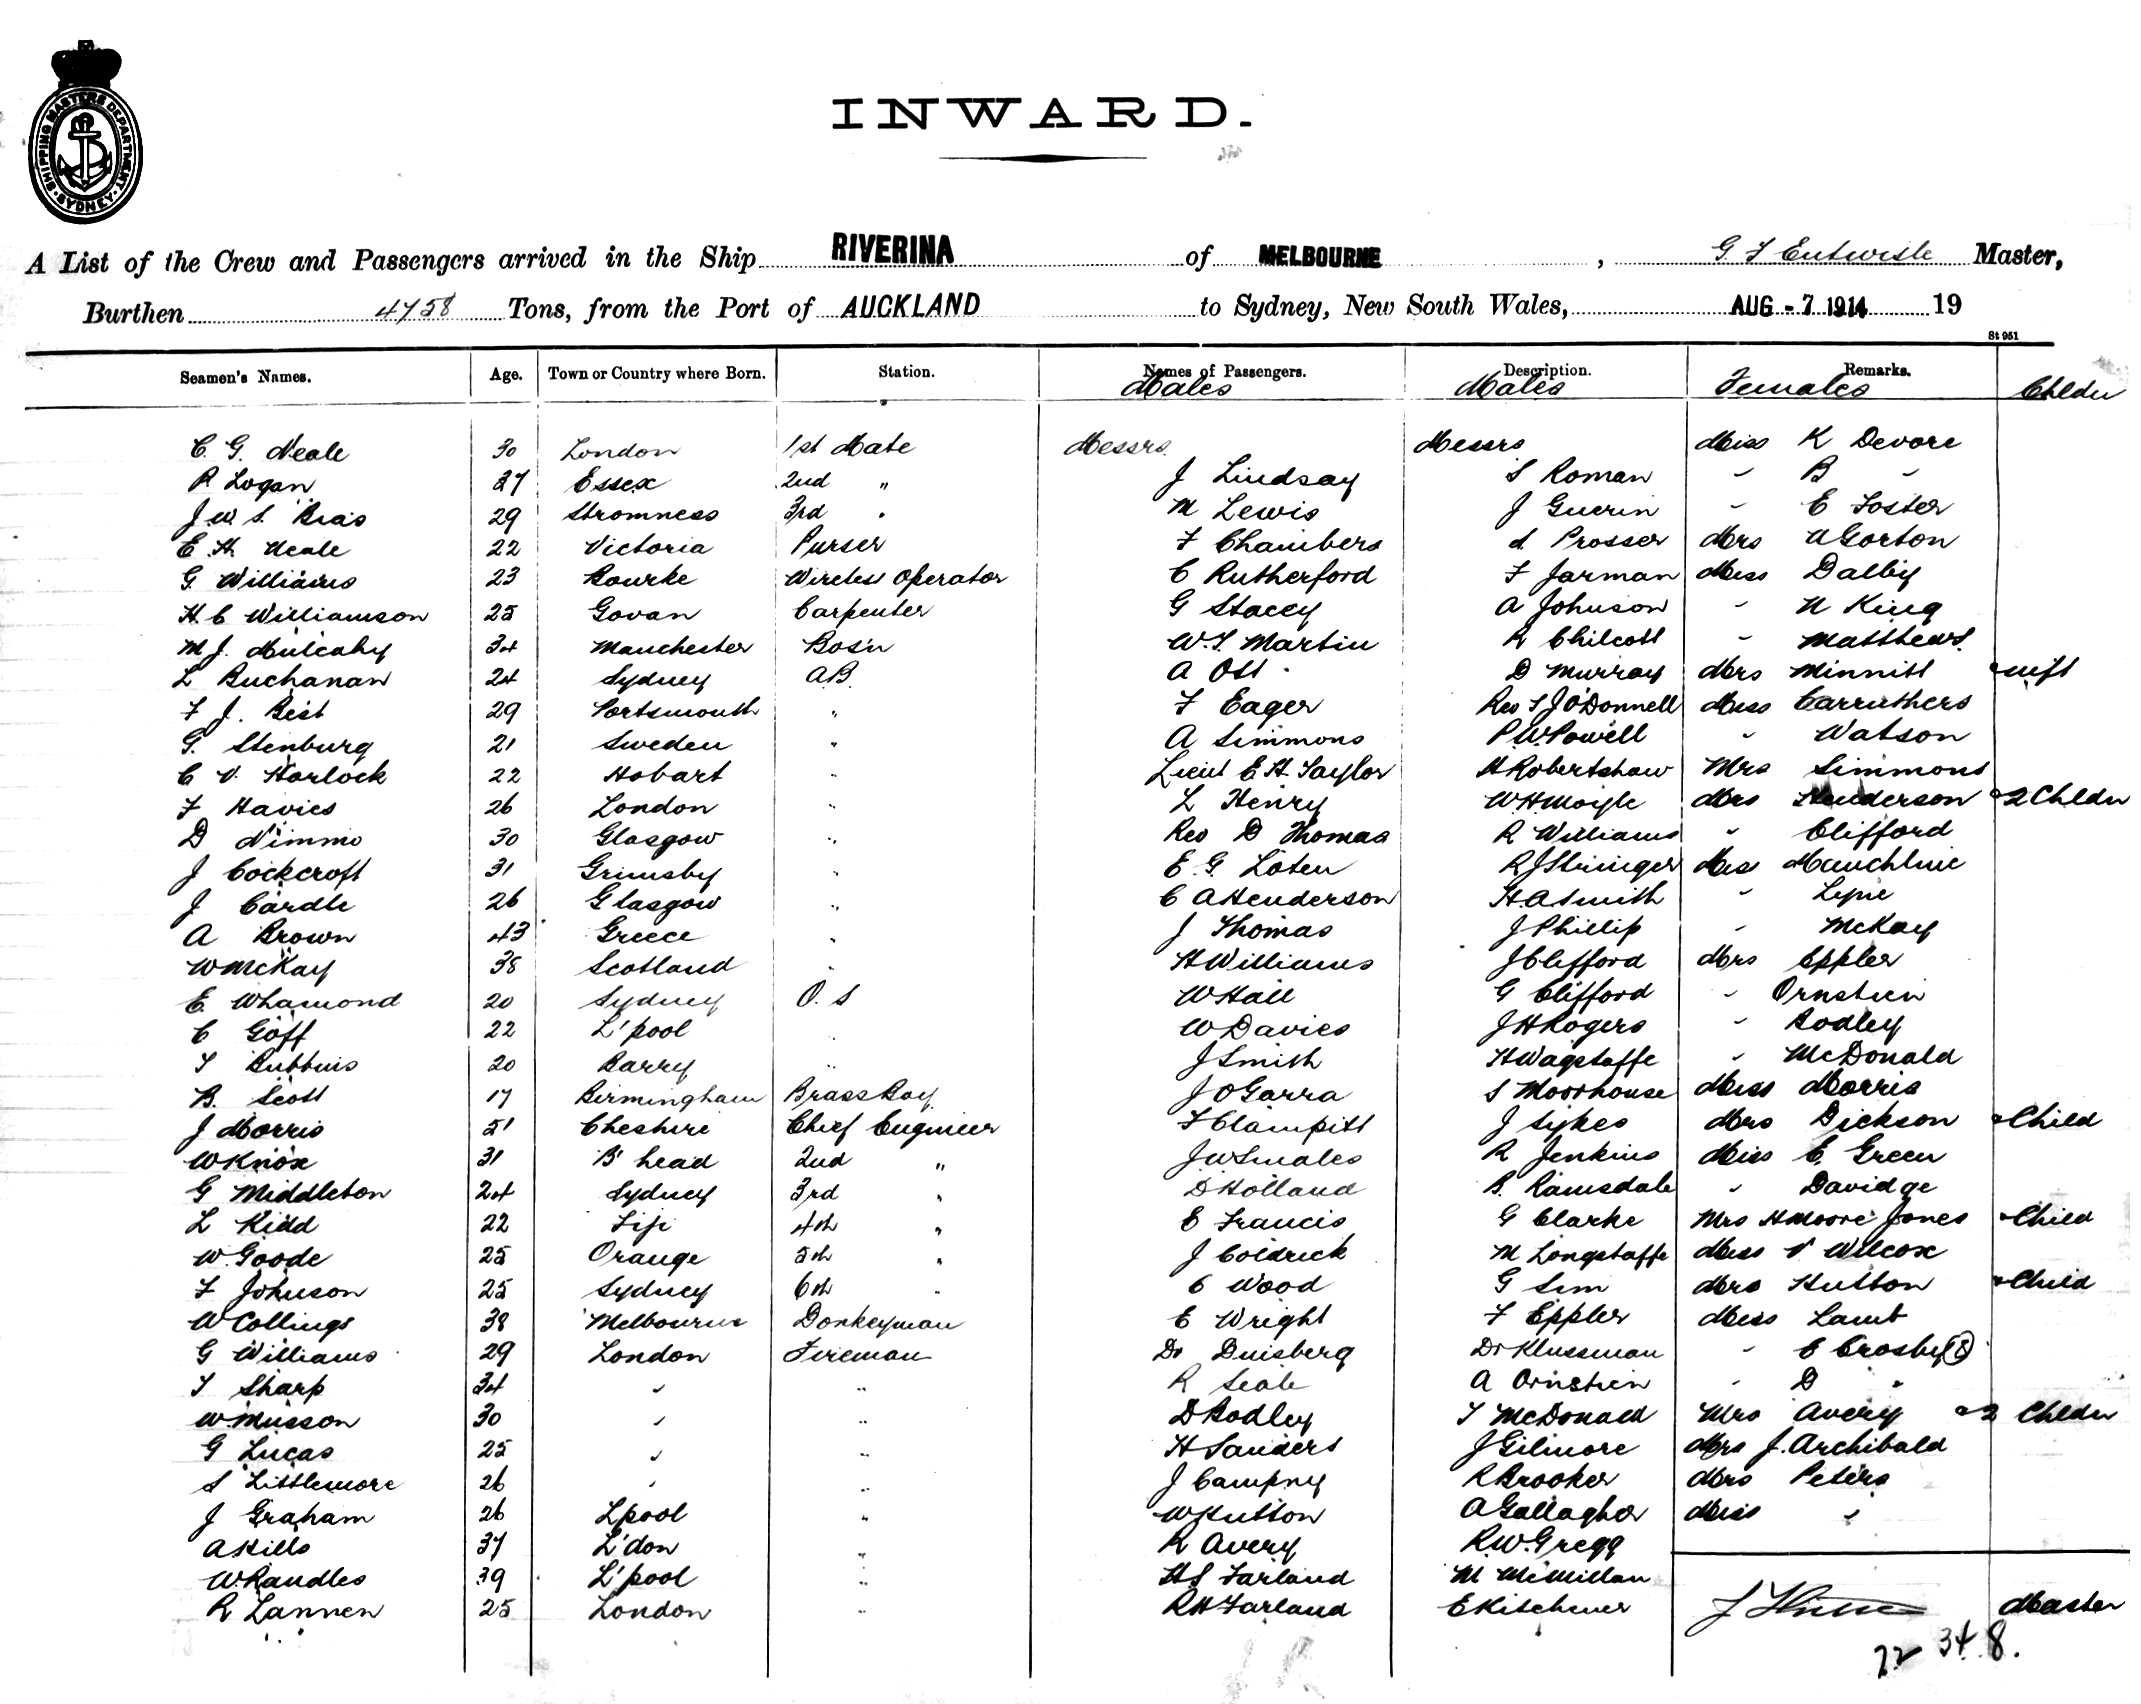 SHIPPING MASTERS DEPARTMENT
SYDNEY
INWARD.
A List of the Crew and Passengers arrived in the Ship RIVERINA of MELBOURNE, G F Entwistle Master,
Burthen 4758 Tons, from the Port of AUCKLAND to Sydney, New South Wales, AUG - 7 1914 19
St 951
Seamen's Names. Age. Town or Country where Born. Station. Names of Passengers. Description. Remarks.
Males Males Females Chldn
C. G. Neale 30 London 1st Mate Messrs. Messrs Miss K Devore
R Logan 27 Essex 2nd " J Lindsay S Roman " B "
J W. S. Bias 29 Stromness 3rd " M Lewis J Guerin " E Foster
E. H. Neale 22 Victoria Purser F Chambers S. Prosser Mrs W Gorton
G. Williams 23 Bourke Wireless Operator C Rutherford F Jarman Miss Dalby
H. C Williamson 25 Govan Carpenter G Stacey A Johnson " N King
M J. Mulcahy 34 Manchester Bos'n W. T. Martin R Chilcott " Matthews
L Buchanan 24 Sydney A.B. A Ott D Murray Mrs Minnitt & inft
F J. Best 29 Portsmouth " F Eager Rev T J O'Donnell Miss Carruthers
G. Stenburg 21 Sweden " A Simmons P. W. Powell " Watson
C V. Horlock 22 Hobart " Lieut E H. Taylor H Robertshaw Mrs Simmons
F Havies 26 London " L Henry W H Moyle Mrs Henderson & 2 Chldn
D Nimmo 30 Glasgow " Rev D Thomas R Williams " Clifford
J Cockcroft 31 Grimsby " E. G. Loten R J Stringer Miss Mauchline
J Cardle 26 Glasgow " C A Henderson H. A Smith " Lyne
A Brown 43 Greece " J Thomas J Phillip " McKay
W McKay 38 Scotland " H Williams J Clifford Mrs Eppler
E. Whamond 20 Sydney O. S W Hall G Clifford " Ornstien
C Goff 22 L'pool " W Davies J H Rogers " Bodley
T Rubbins 20 Barry " J Smith H Wagstaffe " McDonald
B. Scott 17 Birmingham Brass Boy J O Garra S Moorhouse Miss Morris
J Morris 51 Cheshire Chief Engineer F Clampitt J Sykes Mrs Dickson & Child
W Knox 31 B'head 2nd " J W Smales R Jenkins Miss E. Green
G Middleton 24 Sydney 3rd " D Holland B. Ramsdale " Davidge
L Kidd 22 Fiji 4th " E Francis G Clarke Mrs H Moore Jones & Child
W. Goode 25 Orange 5th " J Coldrick M Longstaffe Miss V Wilcox
F Johnson 25 Sydney 6th " C Wood G Sim Mrs Hutton & Child
W Collings 38 Melbourne Donkeyman E Wright F Eppler Miss Lamb
G Williams 29 London Fireman Dr Duisberg Dr Klussman " E Crosby (8)
T Sharp 34 " " R Seale A Ornstien " D "
W Musson 30 " " D Bodley T McDonald Mrs Avery & 2 Chldn
G Lucas 25 " " H Sanders J Gilmore Mrs J. Archibald
S Littlemore 26 " " J Campny R Brooker Mrs Peters
J Graham 26 L'pool " W Hutton A Gallagher Miss "
A Hills 37 L'don " R Avery R. W. Gregg
W. Randles 39 L'pool " H S Farland M McMillan
R Lannen 25 London " R H Farland E Kitchener Master
22 34 8.